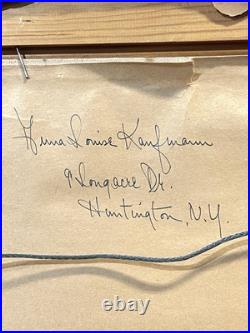 Hima Louise Kaufmann
9 Longacre Dr.
Huntington, N.Y.